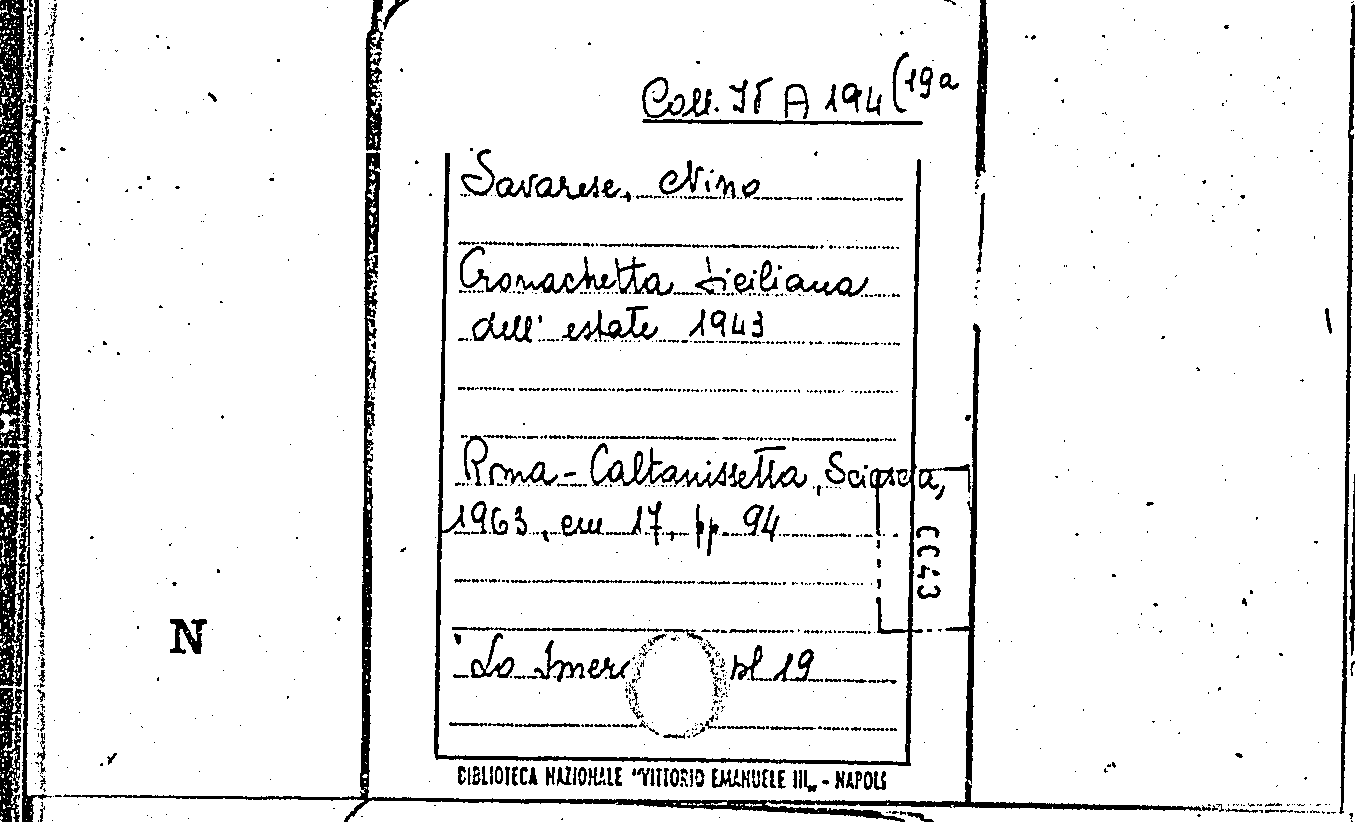 Coll. IV A 194 (19a
Savarese, Nino
Cronachetta Siciliana
dell' estate 1943
Roma - Caltanissetta, Sciascia,
1963, cm 17, pp. 94
CC43
N
19
BIBLIOTECA NAZIONALE "VITTORIO EMANUELE III„ - NAPOLI